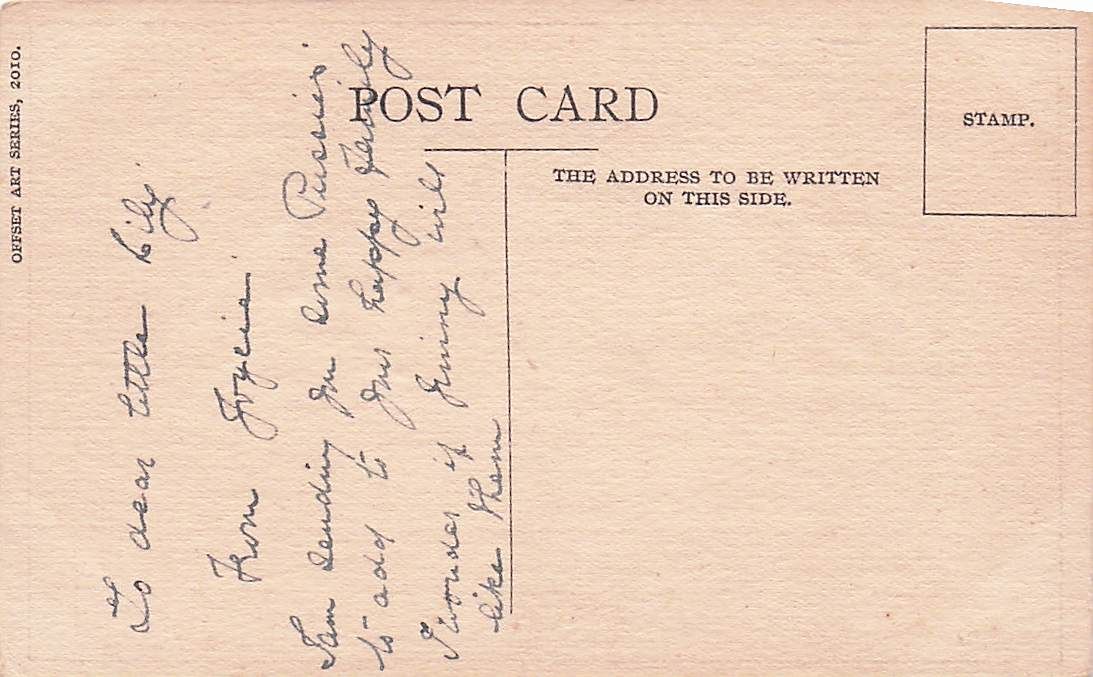 OFFSET ART SERIES, 2010.
POST CARD
THE ADDRESS TO BE WRITTEN
ON THIS SIDE.
STAMP.
To dear little Lily
From Joycie
I am sending you some Pussies
to add to your happy Family
I wonder if Jimmy will
like them